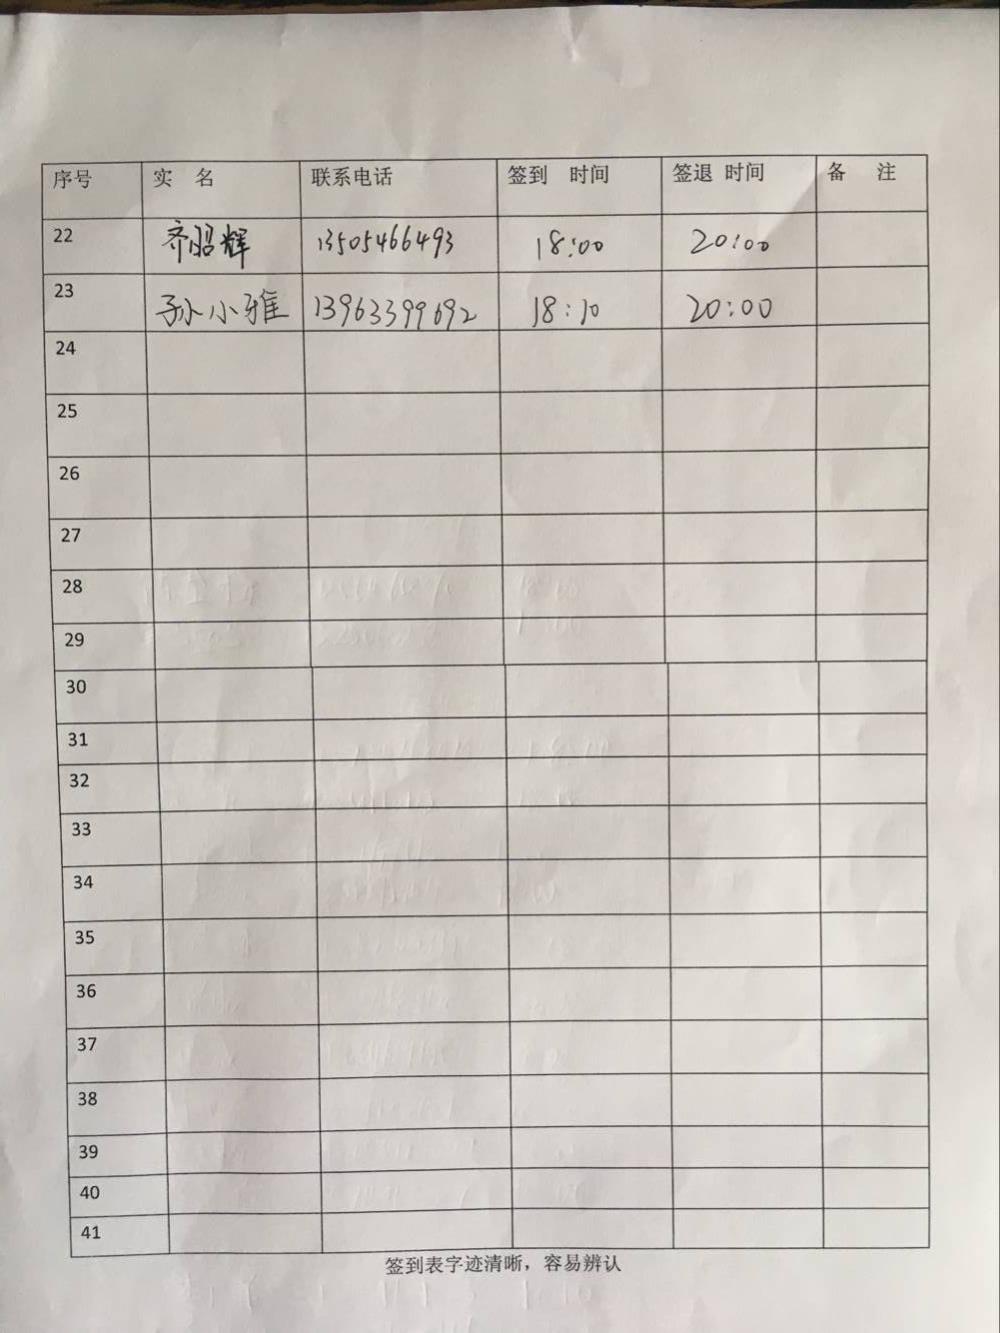 序号 实 名 联系电话 签到 时间 签退 时间 备 注
22 齐昭辉 13505466493 18:00 20:00
23 孙小雅 13963399692 18:10 20:00
24
25
26
27
28
29
30
31
32
33
34
35
36
37
38
39
40
41
签到表字迹清晰，容易辨认